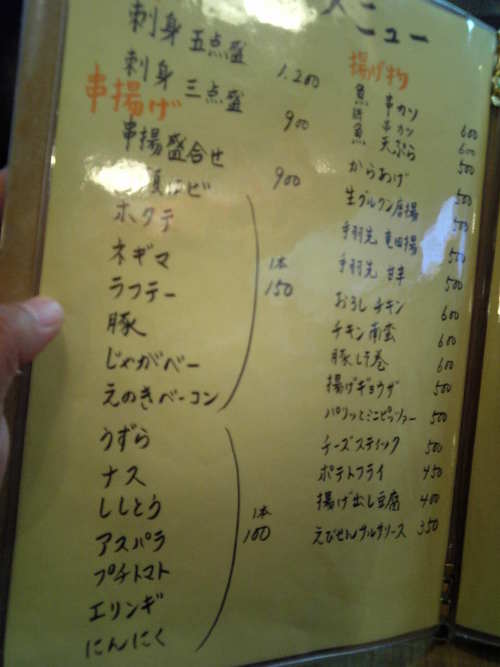 メニュー
刺身 五点盛 1.200
刺身 三点盛 900
串揚げ
串揚盛合せ 900
ビ
ホタテ
ネギマ
ラフテー
豚
じゃがべー
えのきベーコン
1本
150
うずら
ナス
ししとう
アスパラ
プチトマト
エリンギ
にんにく
1本
100
揚げ物
魚 串カツ 600
串カツ 600
魚 天ぷら 500
からあげ 500
生グルクン唐揚 500
手羽先 竜田揚 500
手羽先 甘辛 500
おろしチキン 600
チキン南蛮 600
豚しそ巻 600
揚げギョウザ 500
パリッとミニピッツァー 500
チーズスティック 500
ポテトフライ 450
揚げ出し豆腐 400
えびせんサルサソース 350